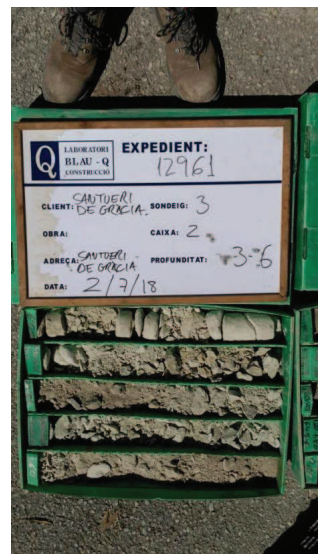 Q LABORATORI
BLAU - Q
CONSTRUCCIÓ
EXPEDIENT:
12961
CLIENT: SANTUERI DE GRÀCIA. SONDEIG: 3
OBRA: CAIXA: 2
ADREÇA: SANTUERI - DE GRÀCIA PROFUNDITAT: 3-6
DATA: 2/7/18